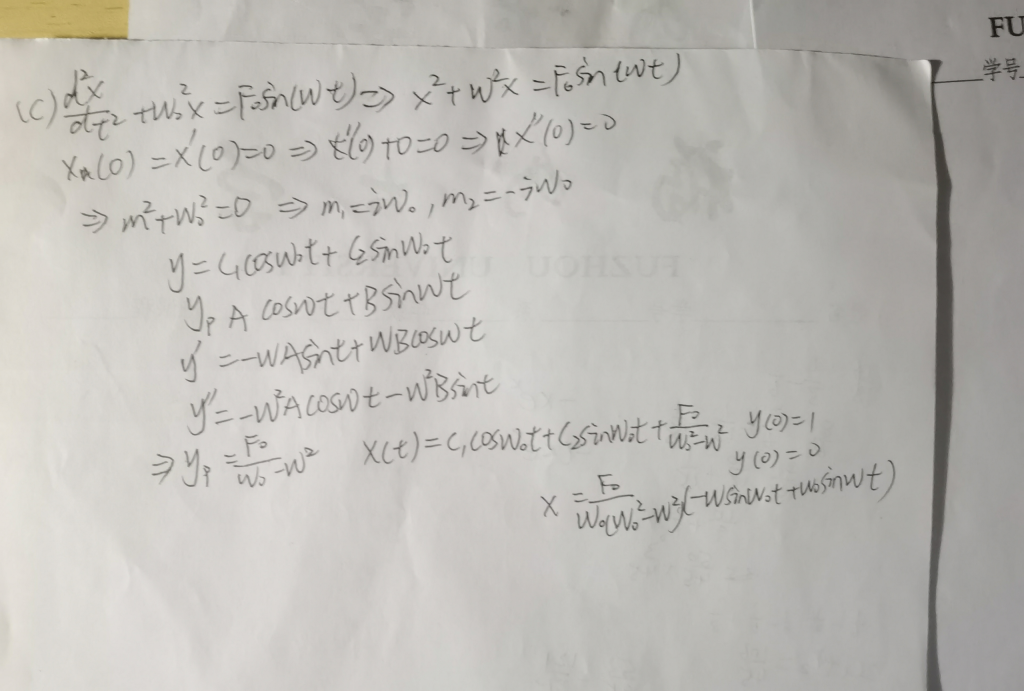 FU
学号
(C) d²x/dt² + W₀²x = F₀sin(Wt) ⇒ x² + W²x = F₀sin(Wt)
(0) = x'(0) = 0 ⇒ (0) + 0 = 0 ⇒ x''(0) = 0
⇒ m² + W₀² = 0 ⇒ m₁ = iW₀, m₂ = -iW₀
y = C₁cosW₀t + C₂sinW₀t
yₚ A cosωt + Bsinwt
y' = -WAsint + WBcoswt
y'' = -W²Acosωt - W²Bsint
⇒ yₚ = F₀/W₀-W² x(t) = C₁cosW₀t + C₂sinW₀t + F₀/W₀²-W² y(0) = 1
y(0) = 0
x = F₀/W₀(W₀²-W²)(-WsinW₀t + W₀sinWt)
FUZHOU UNIVERSITY